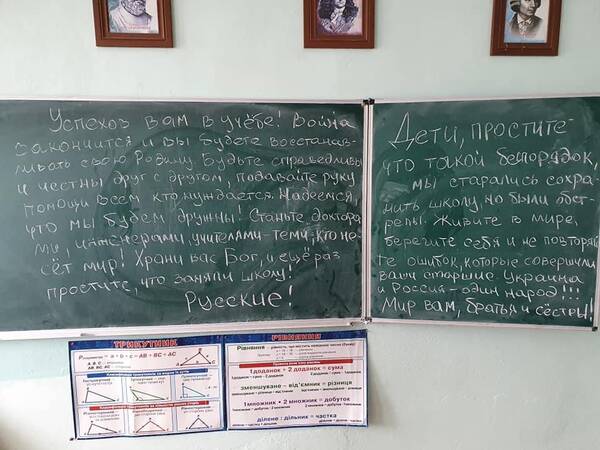 Успехов вам в учёбе! Война
закончится и вы будете восстанав-
ливать свою Родину. Будьте справедливы
и честны друг с другом, подавайте руку
помощи всем кто нуждается. Надеемся
что мы будем дружны! Станьте доктора-
ми, инженерами, учителями – теми, кто не-
сёт мир! Храни вас Бог, и ещё раз
простите, что заняли школу!
Русские!
Дети, простите-
что такой беспорядок,
мы старались сохра-
нить школу, но были обст-
релы. Живите в мире,
берегите себя и не повторяй
те ошибок, которые совершили
ваши старшие. Украина
и Россия – один народ!!!
Мир вам, братья и сёстры!
ТРИКУТНИК
P = a + b + c = AB + BC + AC
РІВНЯННЯ
1доданок + 2 доданок = сума
зменшуване – від'ємник = різниця
1множник • 2 множник = добуток
ділене : дільник = частка